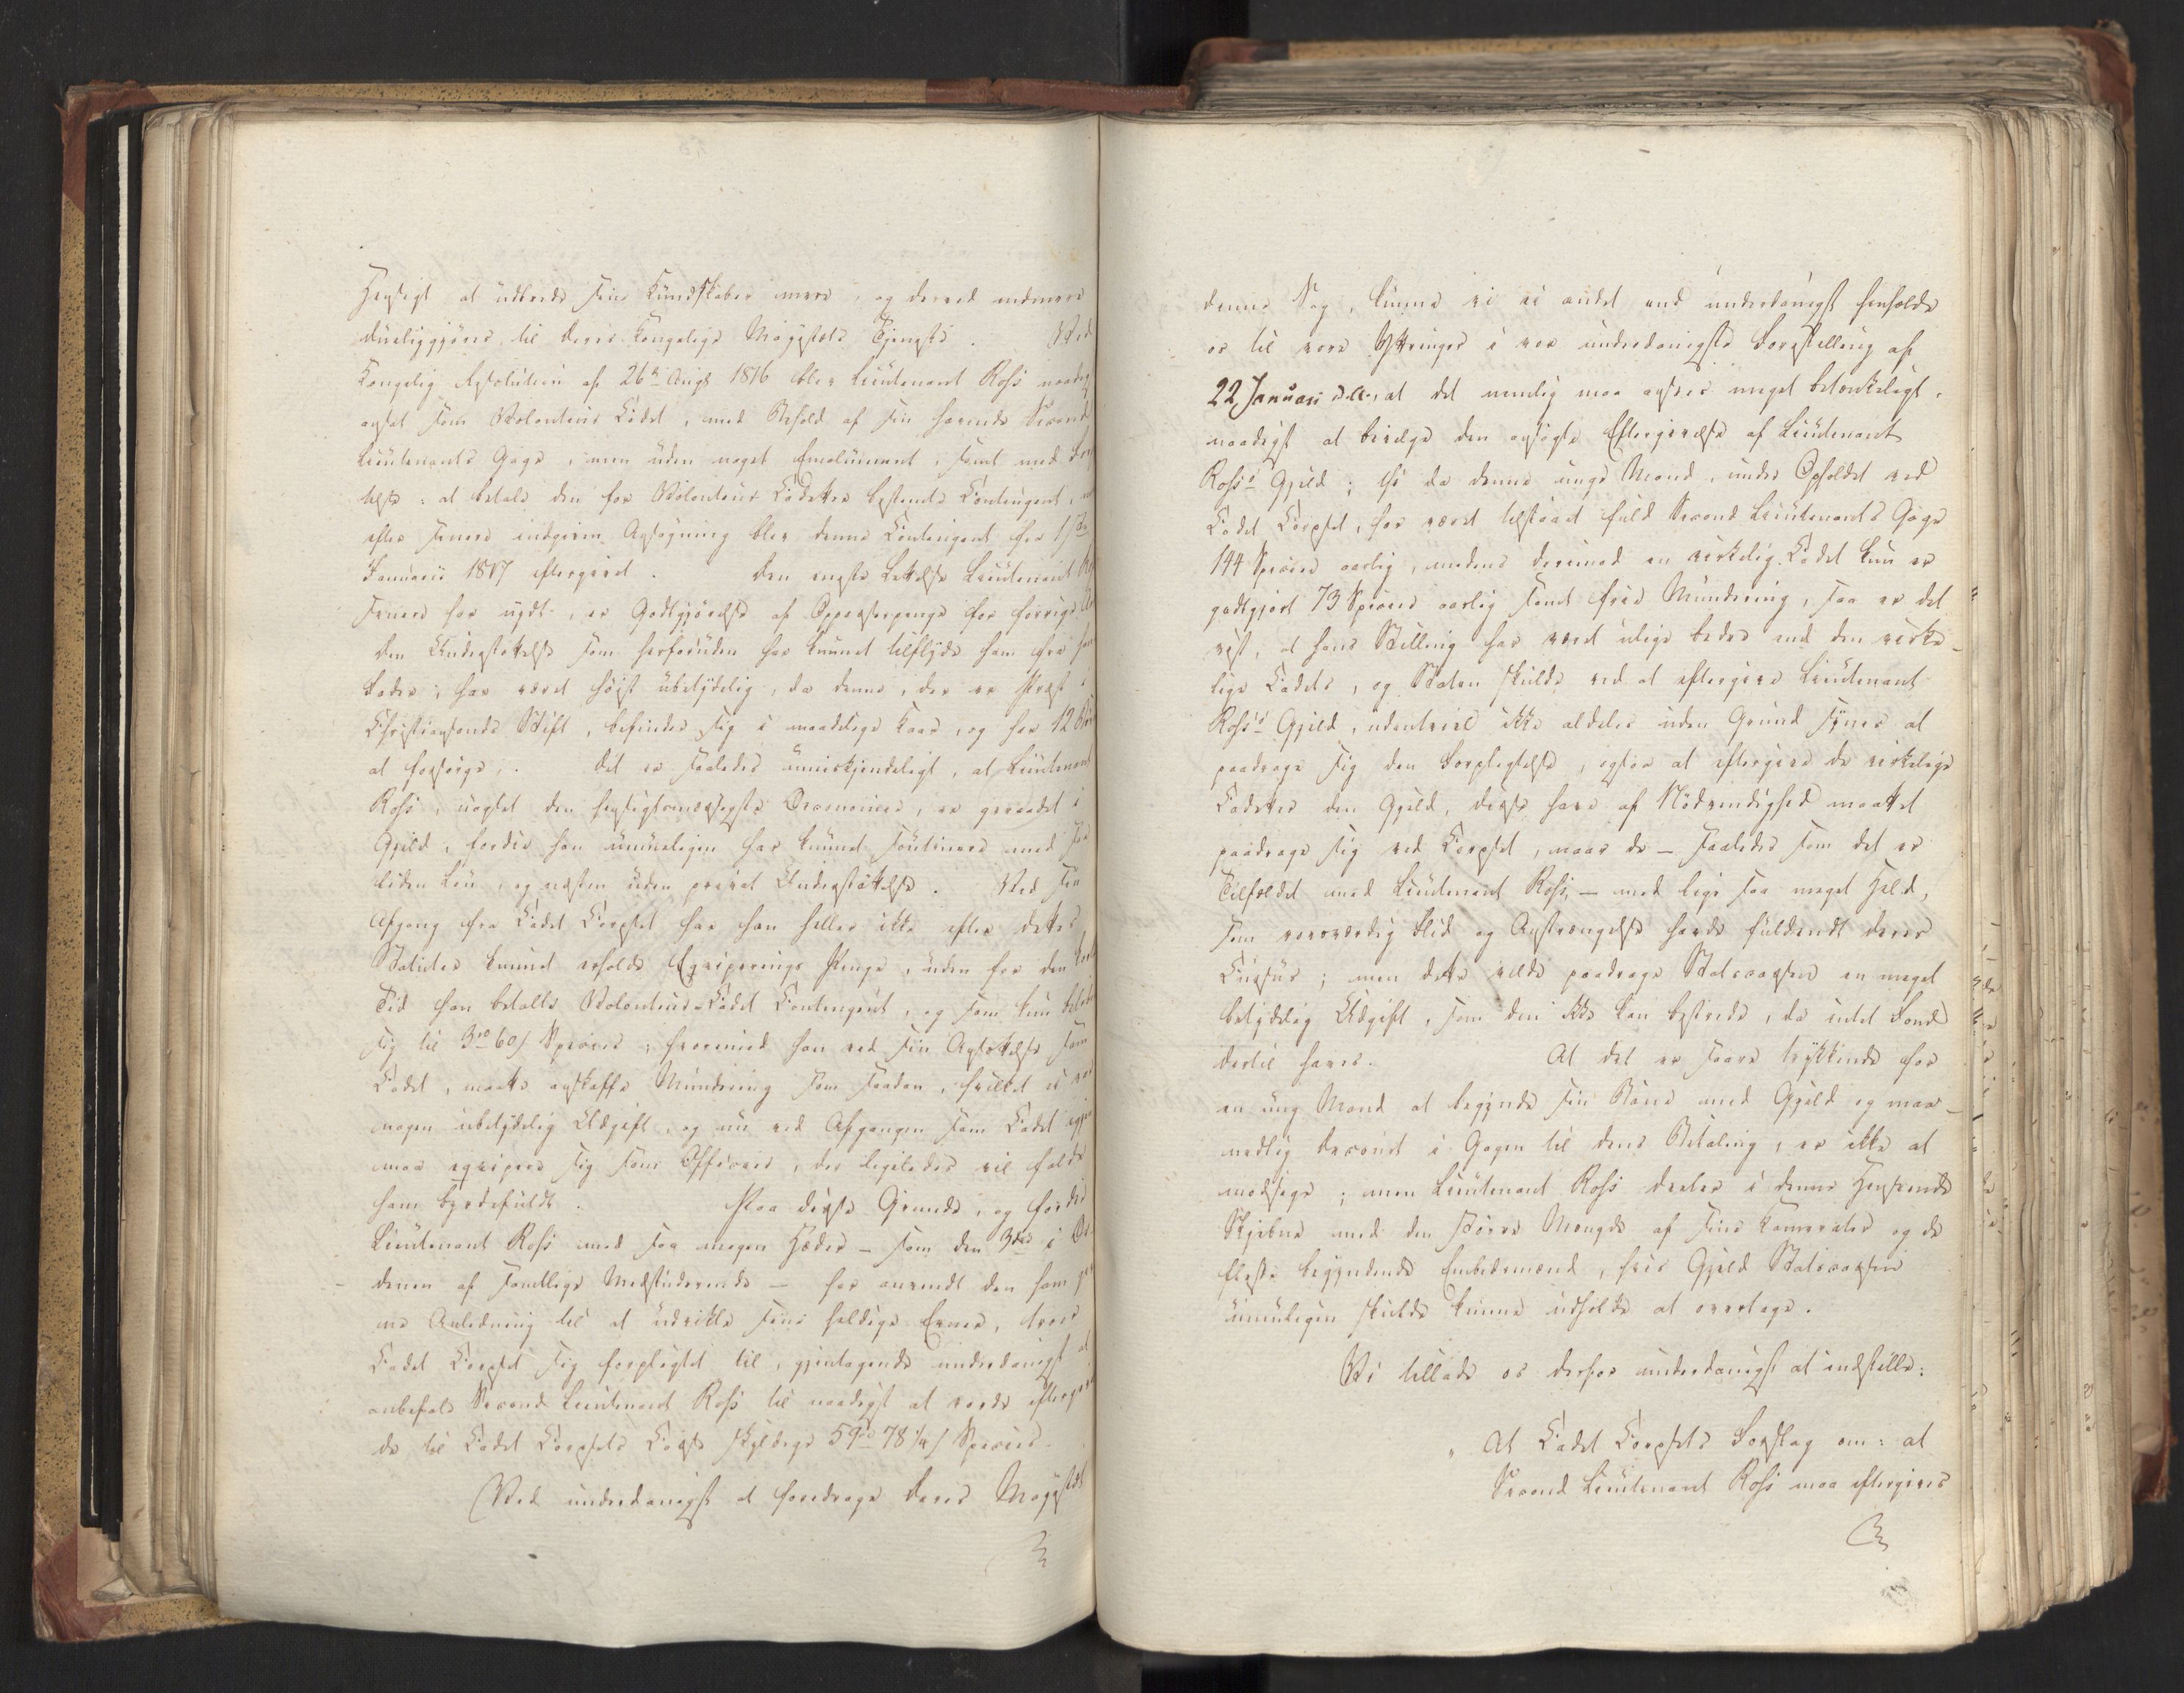 Hensigt at udbrede sine Kundskaber mere, og derved endmere
dueliggjøres til Deres Kongelige Majestæts Tjeneste. Ved
Kongelig Resolution af 26de Augt 1816 blev Lieutenant Ross naadigst
ansat som Volontair Cadet, med Behold af sin havende Second
Lieutenants Gage, men uden noget Emolument, samt med
telse: at betale den for Volontair Cadetter bestemte Contingent,
efter senere indgiven Ansøgning blev denne Contingent fra 1ste
Januarii 1817 eftergivet. Den eneste Lettelse Lieutenant
senere har nydt, er Godtgjørelse af Oppasserpenge for forrige
den Understøttelse som herforuden har kunnet tilflyde ham fra
Fader, har været høist ubetydelig, da denne, der er Præst i
Christiansands Stift, befinder sig i maadelige Kaar, og har 12
at forsørge. Det er saaledes umiskjendeligt, at Lieutenant
Ross, uagtet den hensigtsmæssigste Oeconomie, er geraadet i
Gjæld, fordie han umueligen har kunnet soutinere med saa
liden Løn, og næsten uden privat Understøttelse. Ved sin
Afgang fra Cadet Corpset har han heller ikke efter dettes
Statuter kunnet erholde Equiperings Penge, uden for den
Tid han betalte Volontair-Cadet Contingent, og som kun beløb
sig til 3 60 s Species; hvorimod han ved sin Ansættelse som
Cadet, maatte anskaffe Mundering som saadan, hvilket er
nogen ubetydelig Udgift, og nu ved Afgangen som Cadet
maa equipere sig som Officier, der ligeledes vil falde
ham byrdefuldt. Paa disse Grunde, og fordie
Lieutenant Ross med saa megen Hæder – som den 3die i
denen af samtlige Medstuderende – har anvendt den ham
ne Anledning til at udvikle sine heldige Evner, troer
Cadet Corpset sig forpligtet til, gjentagende underdanigst at
anbefale Second Lieutenant Ross til naadigst at vorde eftergivet
de til Cadet Corpsets Casse skyldige 59 78 1/4 s Species.
Ved underdanigst at foredrage Deres Majestæt
denne Sag, kunne vi ei andet end underdanigst henholde
os til vore Yttringer i vor underdanigste Forestilling af
22 Januari d. A., at det nemlig maa ansees meget betænkeligt,
naadigst at bevilge den ansøgte Eftergivelse af Lieutenant
Ross's Gjæld; thi da denne unge Mand, under Opholdet ved
Cadet Corpset, har været tilstaaet fuld Second Lieutenants Gage
144 Species aarlig, medens derimod en virkelig Cadet kun er
godtgjort 73 Species aarlig samt frie Mundering, saa er det
vist, at hans Stilling har været ulige bedre end den virke-
lige Cadets, og Staten skulde ved at eftergive Lieutenant
Ross's Gjæld, udentvivl ikke aldeles uden Grund synes at
paadrage sig den Forpligtelse, ogsaa at eftergive de virkelige
Cadetter den Gjæld, disse have af Nødvendighed maattet
paadrage sig ved Corpset, naar de – saaledes som det er
Tilfældet med Lieutenant Ross, – med lige saa meget Held,
som roesværdig Flid og Anstrængelse havde fuldendt deres
Cursus; men dette vilde paadrage Statscassen en meget
betydelig Udgift, som den ikke kan bestride, da intet Fond
dertil haves. At det er saare trykkende for
en ung Mand at begynde sin Bane med Gjæld og maa-
nedlig Decourt i Gagen til dens Betaling, er ikke at
modsige; men Lieutenant Ross deeler i denne Henseende
Skjebne med den større Mængde af sine Kamerater og de
fleste begyndende Embedsmænd, hvis Gjæld Statscassen
umueligen skulde kunne udholde at overtage.
Vi tillade os derfor underdanigst at indstille:
„At Cadet Corpsets Forslag om: at
Second Lieutenant Ross maa eftergives